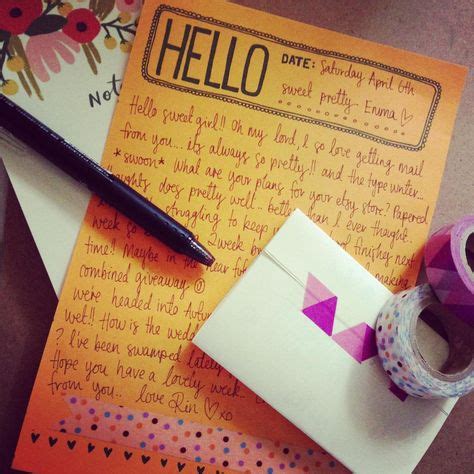 Not
HELLO
DATE: Saturday April 6th
sweet pretty Emma
Hello sweet girl!! Oh my lord, I so love getting mail
from you... its always so pretty!! and the type writer...
*swoon* What are your plans for your etsy store? Papered
thoughts does pretty well.. better than I ever thought..
struggling to keep finishey next
week so 2 week making
time!! Maybe in the near
combined giveaway
we're headed into
wet!! How is the wedd
? I've been swamped lately
Hope you have a lovely week..
from you.. love Rin xo